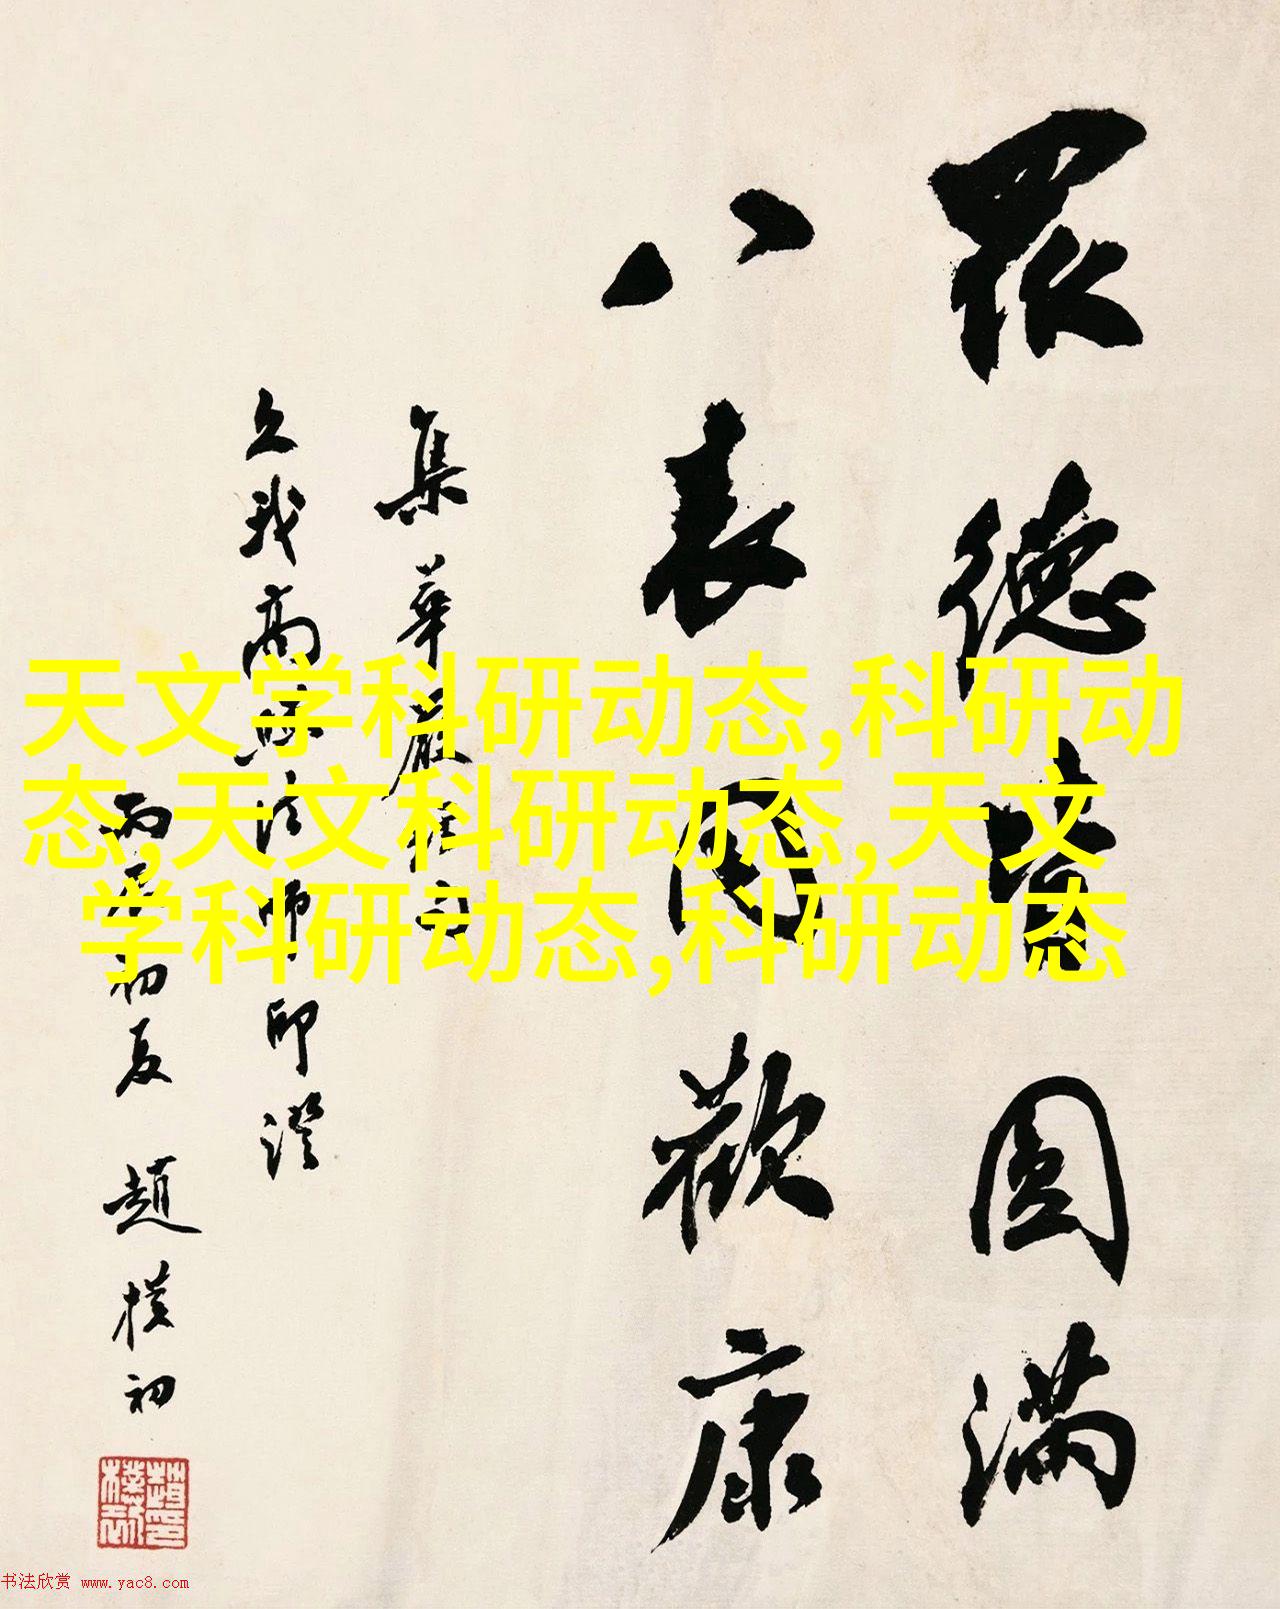 眾德皆圓滿
八表同歡康
集華嚴經句
久我高照法師印證
丙辰初夏 趙樸初
天文学科研动态,科研动
态,天文科研动态,天文
学科研动态,科研动态
书法欣赏 www.yac8.com